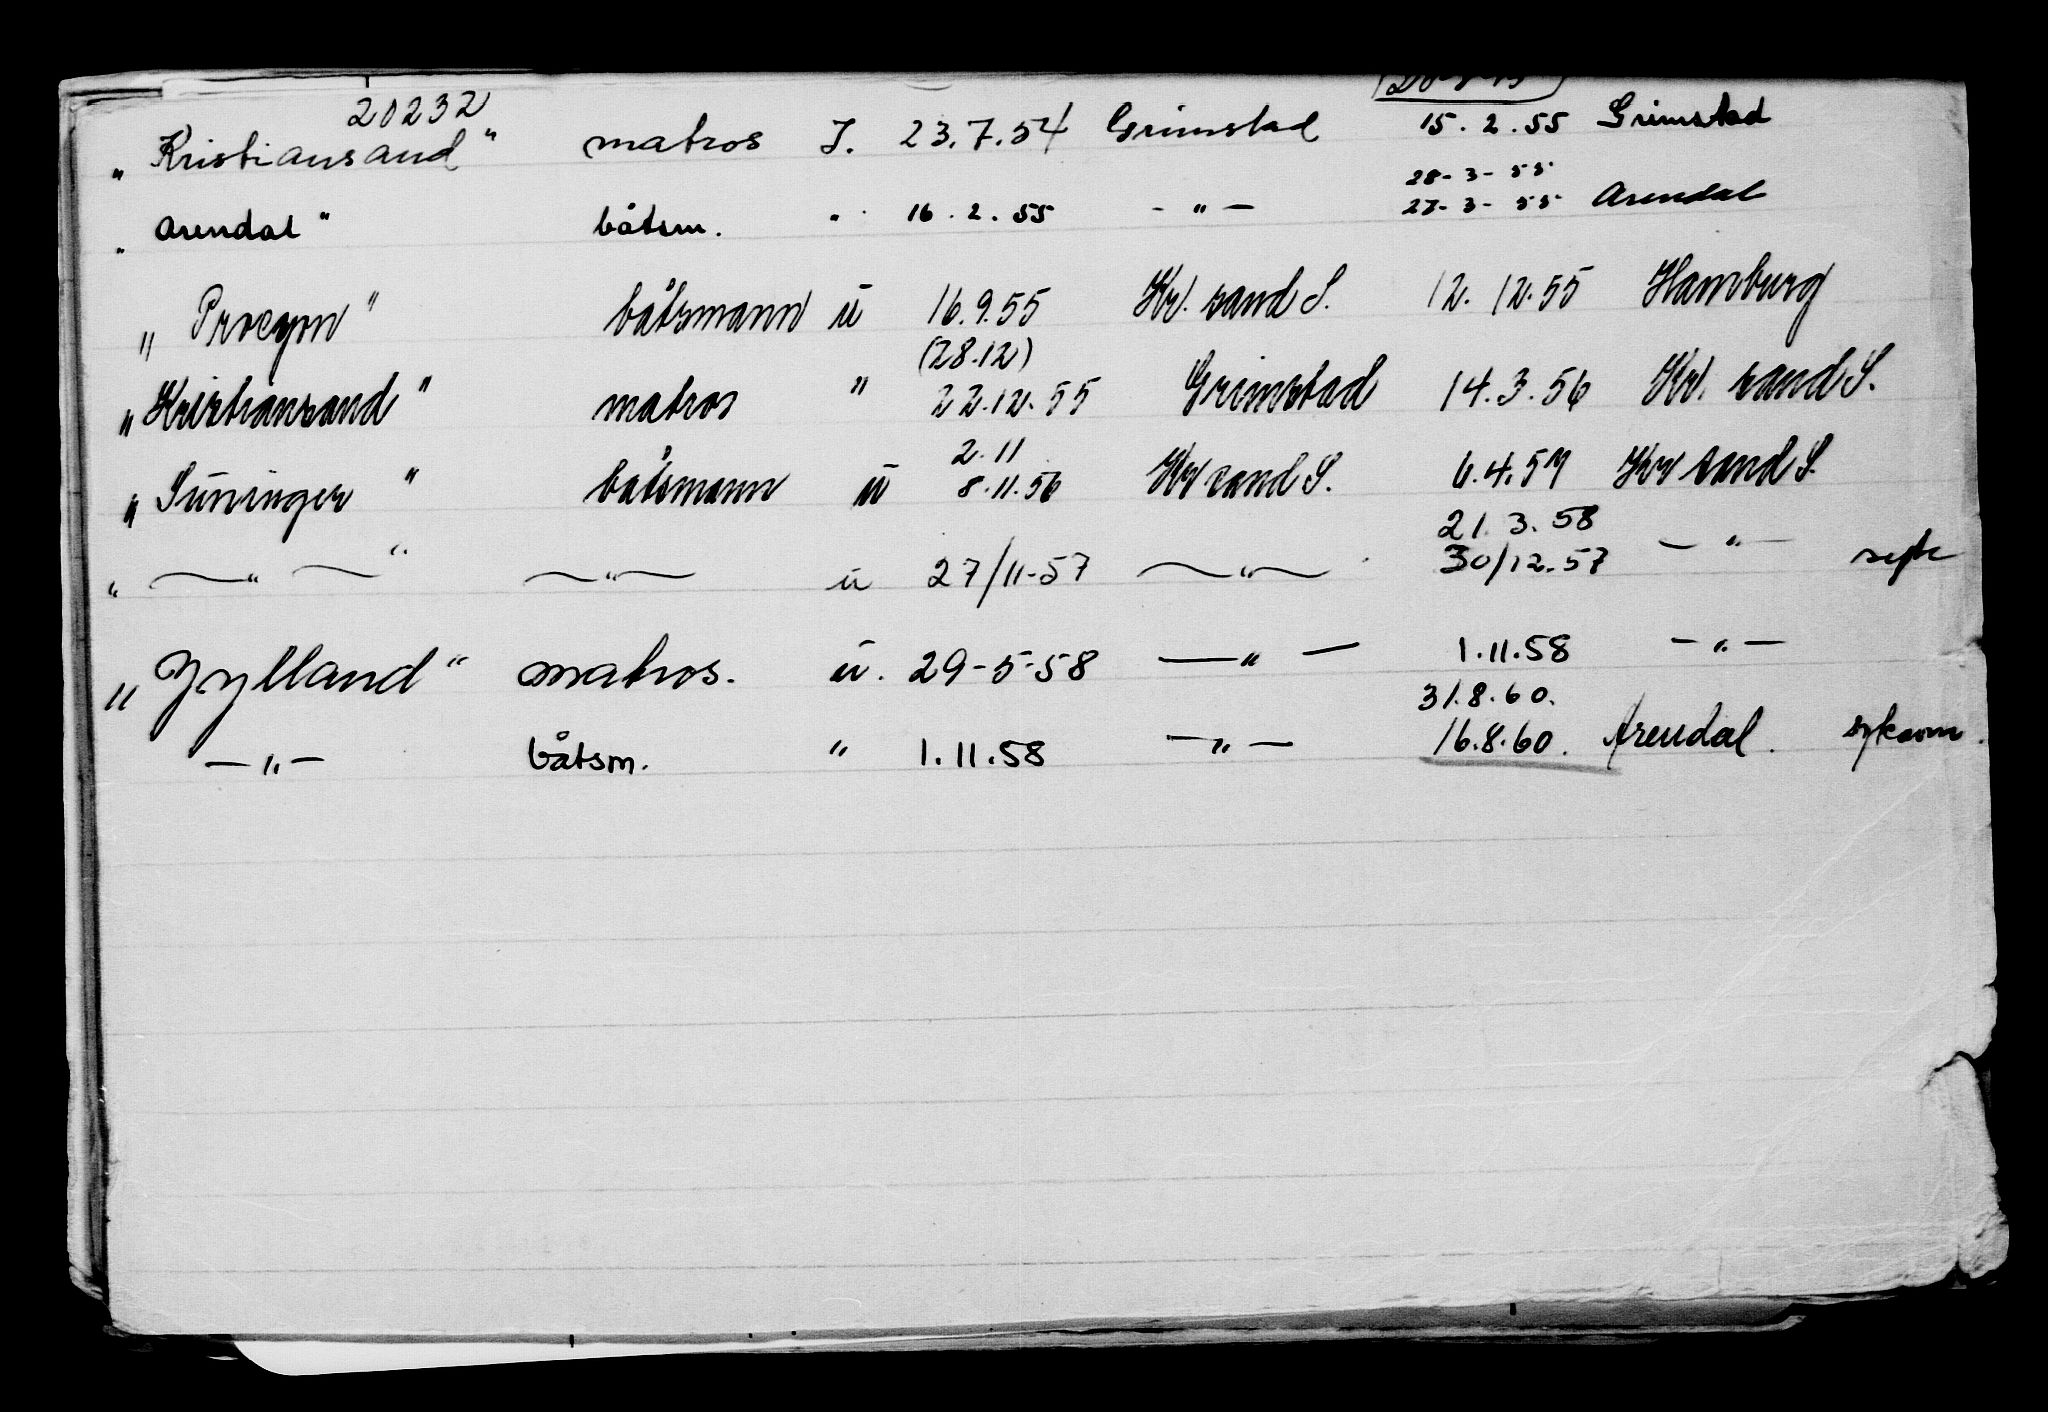 20232
„ Kristiansand" matros I. 23.7.54 Grimstad 15.2.55 Grimstad
28-3-55
„ Arendal" båtsm. " 16.2.55 - " - 27-3-55 Arendal
„ Procyon" båtsmann u 16.9.55 Kr. sand S. 12.12.55 Hamburg
(28.12)
„ Kristiansand" matros " 22.12.55 Grimstad 14.3.56 Kr. sand S.
2.11
„ Suninger " båtsmann u 8.11.56 Kr sand S. 6.4.57 Kr sand S.
21.3.58
„ — " — " — " — u 27/11-57 — " — 30/12.57 — " —
„ Jylland" matros. u. 29-5-58 — " — 1.11.58 - " -
31.8.60.
- " - båtsm. " 1.11.58 - " - 16.8.60. Arendal. syksom.